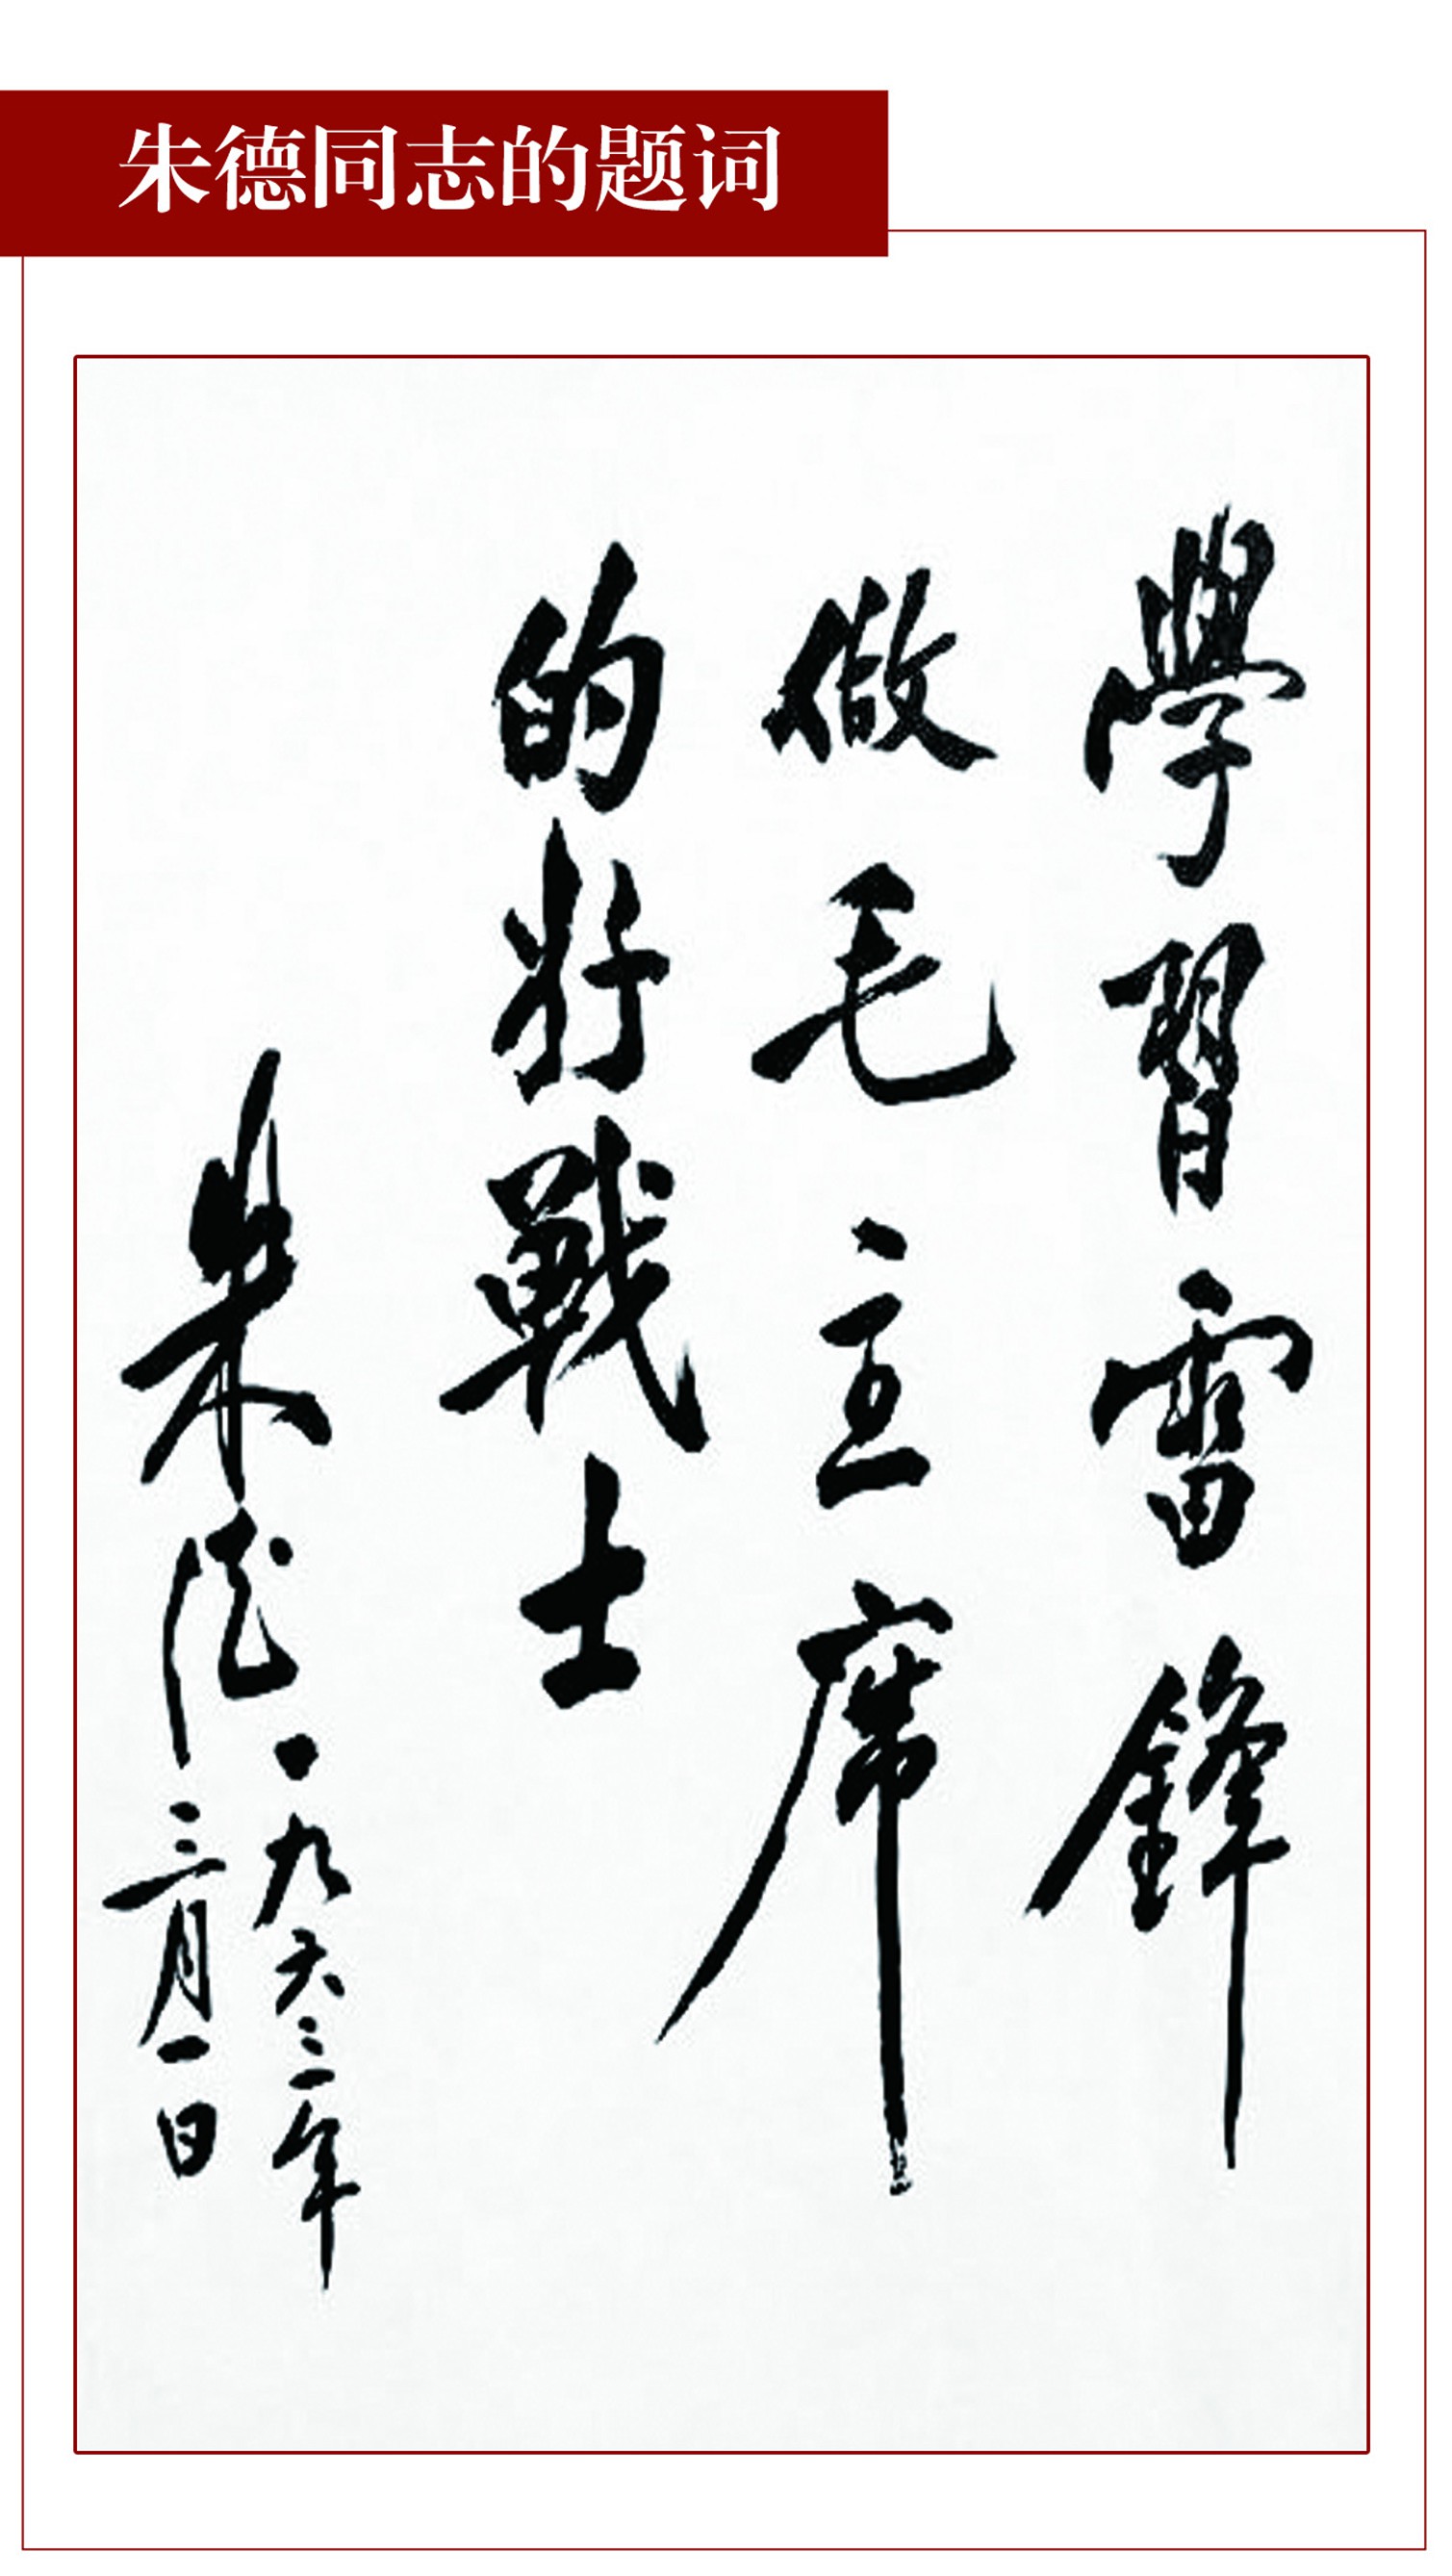 朱德同志的题词
學習雷鋒
做毛主席
的好戰士
朱德
一九六三年
三月一日